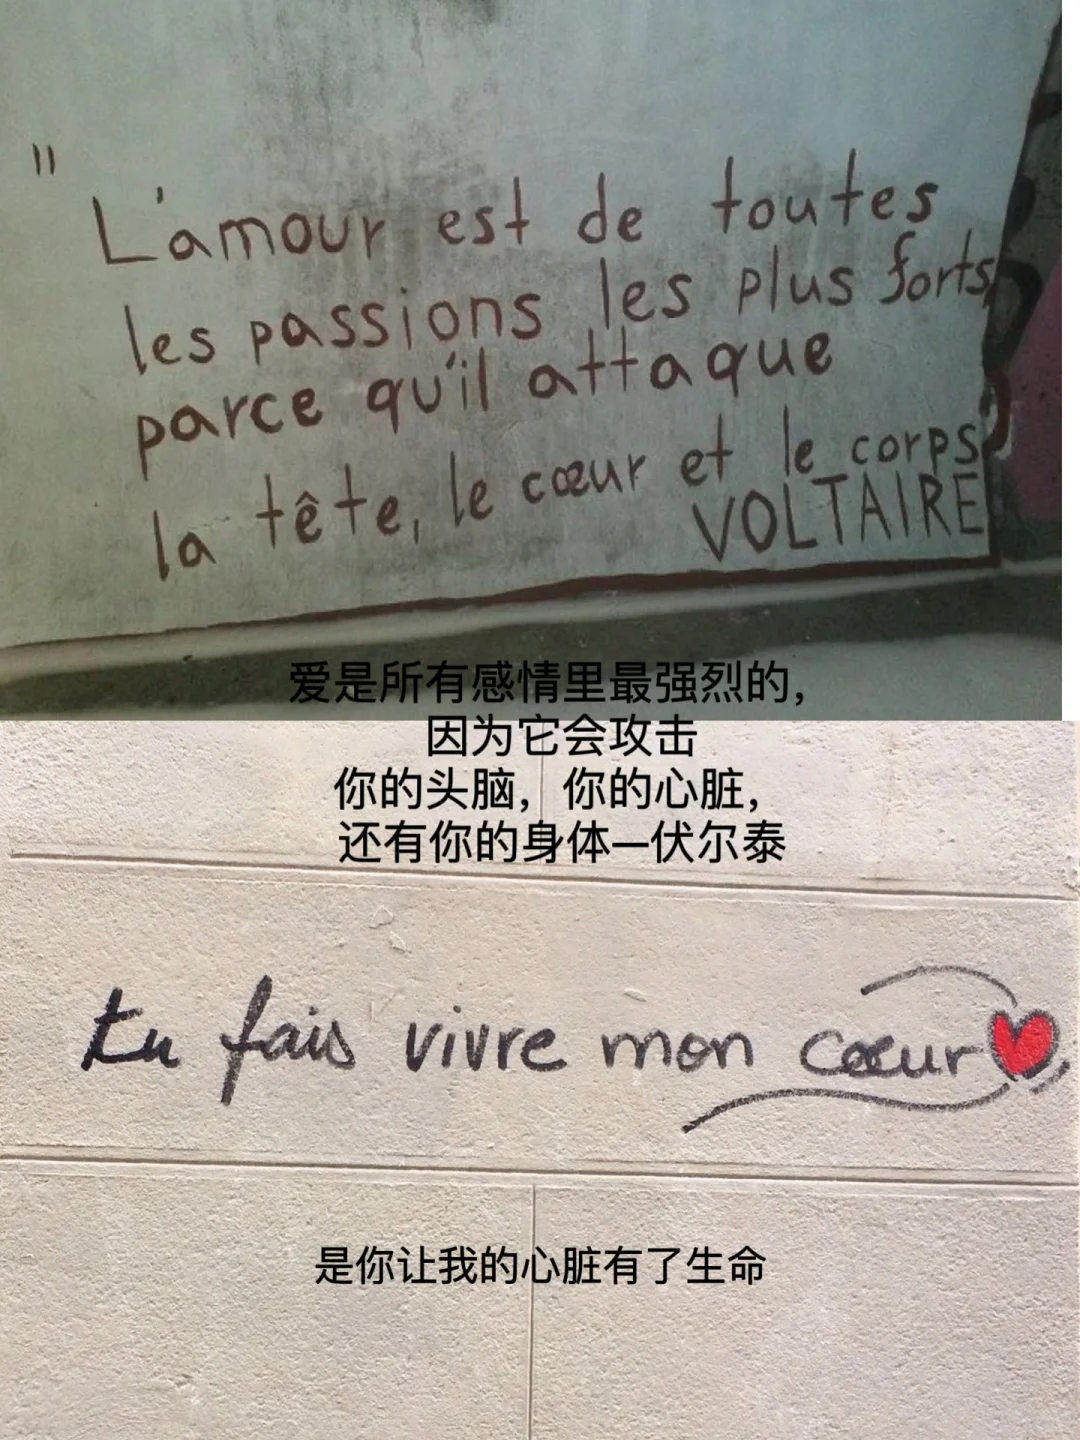 "
L'amour est de toutes
les passions les plus forts,
parce qu'il attaque
la tête, le cœur et le corps
VOLTAIRE
爱是所有感情里最强烈的，
因为它会攻击
你的头脑，你的心脏，
还有你的身体—伏尔泰
tu fais vivre mon cœur
是你让我的心脏有了生命